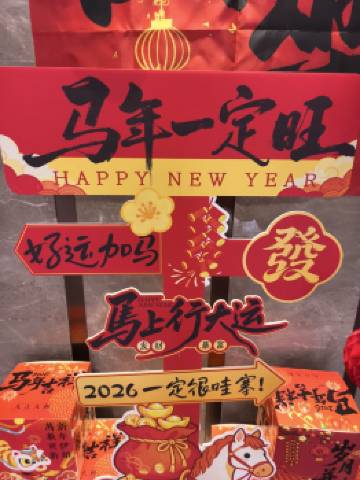 马年一定旺
HAPPY NEW YEAR
好运加马
發
馬上行大运
发财 暴富
2026一定很哇塞!
马年吉祥
吉祥